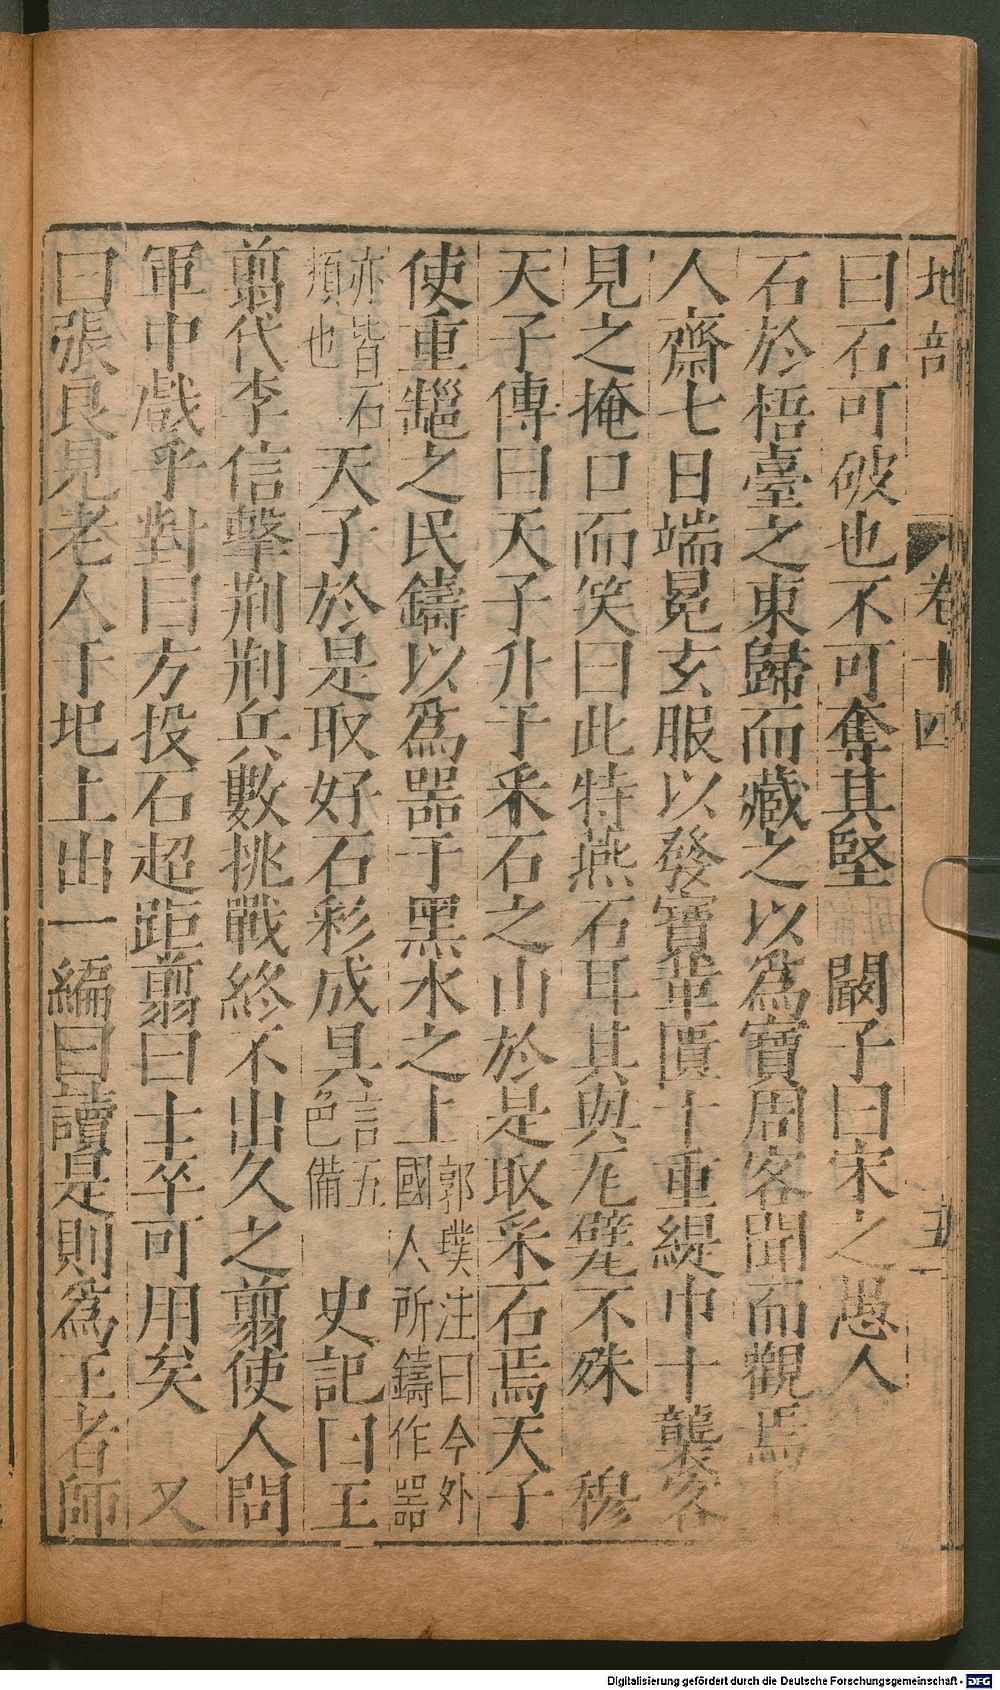 地部 卷十四 五
曰石可破也不可奪其堅 闞子曰宋之愚人
石於梧臺之東歸而藏之以為寶周客聞而觀焉
人齋七日端冕玄服以發寶革匱十重緹巾十襲客
見之掩口而笑曰此特燕石耳其與瓦甓不殊 穆
天子傳曰天子升于釆石之山於是取采石焉天子
使重䵻之民鑄以為器于黑水之上郭璞注曰今外國人所鑄作器
亦皆石類也天子於是取好石彩成具言五色備 史記曰王
翦代李信擊荆荆兵數挑戰終不出久之翦使人問
軍中戲乎對曰方投石超距翦曰士卒可用矣 又
曰張良見老人于圯上出一編曰讀是則為王者師
Digitalisierung gefördert durch die Deutsche Forschungsgemeinschaft - DFG